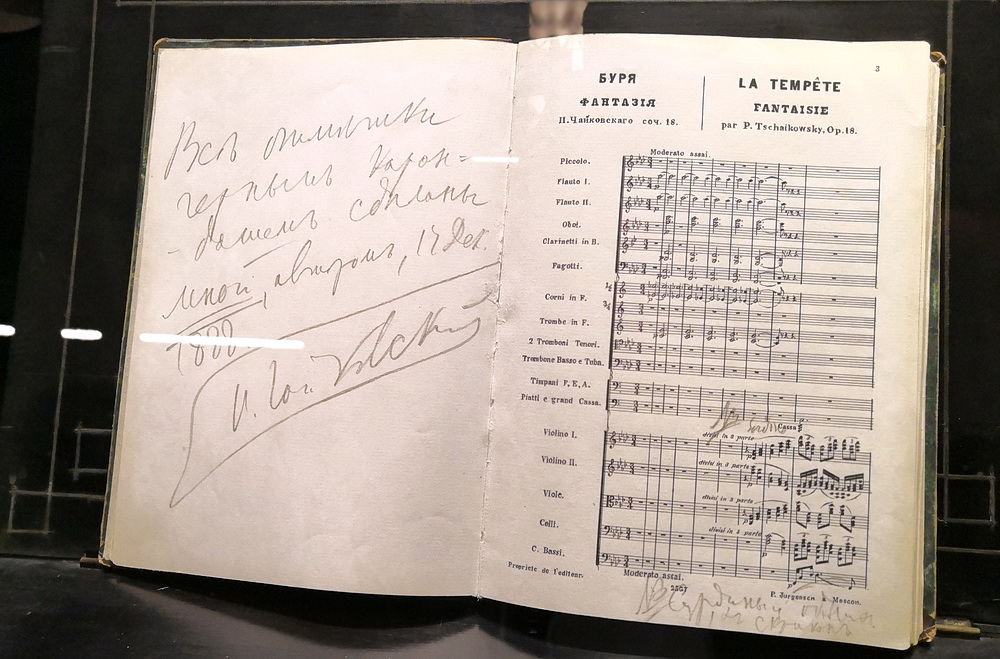 Всѣ отмѣтки
чернымъ каран=
- дашемъ сдѣланы
мной, авторомъ, 17 Дек.
П. Чайковскій
3
БУРЯ
ФАНТАЗІЯ
П. Чайковскаго соч. 18.
LA TEMPÊTE
FANTAISIE
par P. Tschaikowsky, Op. 18.
Moderato assai.
Piccolo.
Flauto I.
Flauto II.
Oboi.
Clarinetti in B.
Fagotti.
Corni in F.
Trombe in F.
2 Tromboni Tenori.
Trombone Basso e Tuba.
Timpani F, E, A.
Piatti e grand Cassa.
NB Cassa
Violino I.
divisi in 3 parte
Violino II.
divisi in 3 parte
Viole.
divisi in 3 parte
Celli.
divisi in 3 parte
C. Bassi.
Moderato assai.
Propriete de l'editeur.
2807
P. Jurgenson à Moscou.
NB Сурдины